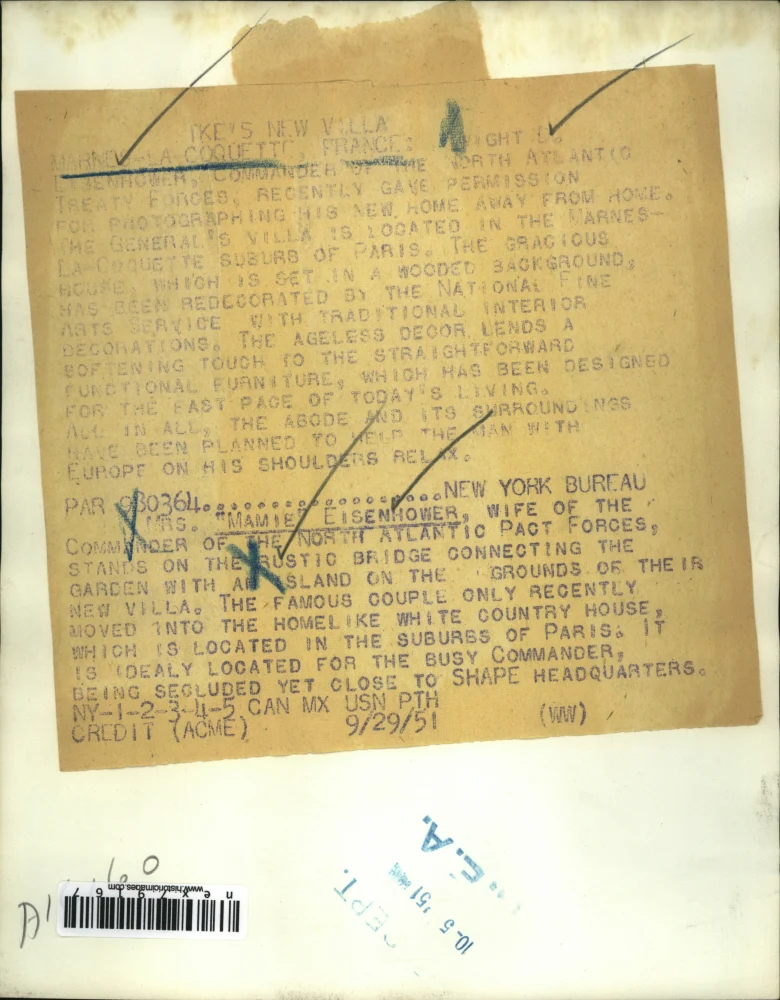 IKE'S NEW VILLA
MARNES-LA COQUETTE, FRANCE: DWIGHT D.
EISENHOWER, COMMANDER OF THE NORTH ATLANTIC
TREATY FORCES, RECENTLY GAVE PERMISSION
FOR PHOTOGRAPHING HIS NEW HOME AWAY FROM HOME.
THE GENERAL'S VILLA IS LOCATED IN THE MARNES-
LA-COQUETTE SUBURB OF PARIS. THE GRACIOUS
HOUSE, WHICH IS SET IN A WOODED BACKGROUND,
HAS BEEN REDECORATED BY THE NATIONAL FINE
ARTS SERVICE WITH TRADITIONAL INTERIOR
DECORATIONS. THE AGELESS DECOR LENDS A
SOFTENING TOUCH TO THE STRAIGHTFORWARD
FUNCTIONAL FURNITURE, WHICH HAS BEEN DESIGNED
FOR THE FAST PACE OF TODAY'S LIVING.
ALL IN ALL, THE ABODE AND ITS SURROUNDINGS
HAVE BEEN PLANNED TO HELP THE MAN WITH
EUROPE ON HIS SHOULDERS RELAX.
PAR 980364.....................NEW YORK BUREAU
MRS. "MAMIE" EISENHOWER, WIFE OF THE
COMMANDER OF THE NORTH ATLANTIC PACT FORCES,
STANDS ON THE RUSTIC BRIDGE CONNECTING THE
GARDEN WITH AN ISLAND ON THE GROUNDS OF THEIR
NEW VILLA. THE FAMOUS COUPLE ONLY RECENTLY
MOVED INTO THE HOMELIKE WHITE COUNTRY HOUSE,
WHICH IS LOCATED IN THE SUBURBS OF PARIS. IT
IS IDEALY LOCATED FOR THE BUSY COMMANDER,
BEING SECLUDED YET CLOSE TO SHAPE HEADQUARTERS.
NY-1-2-3-4-5 CAN MX USN PTH
CREDIT (ACME) 9/29/51 (WW)
E.A.
10-5 '51
www.historicimages.com